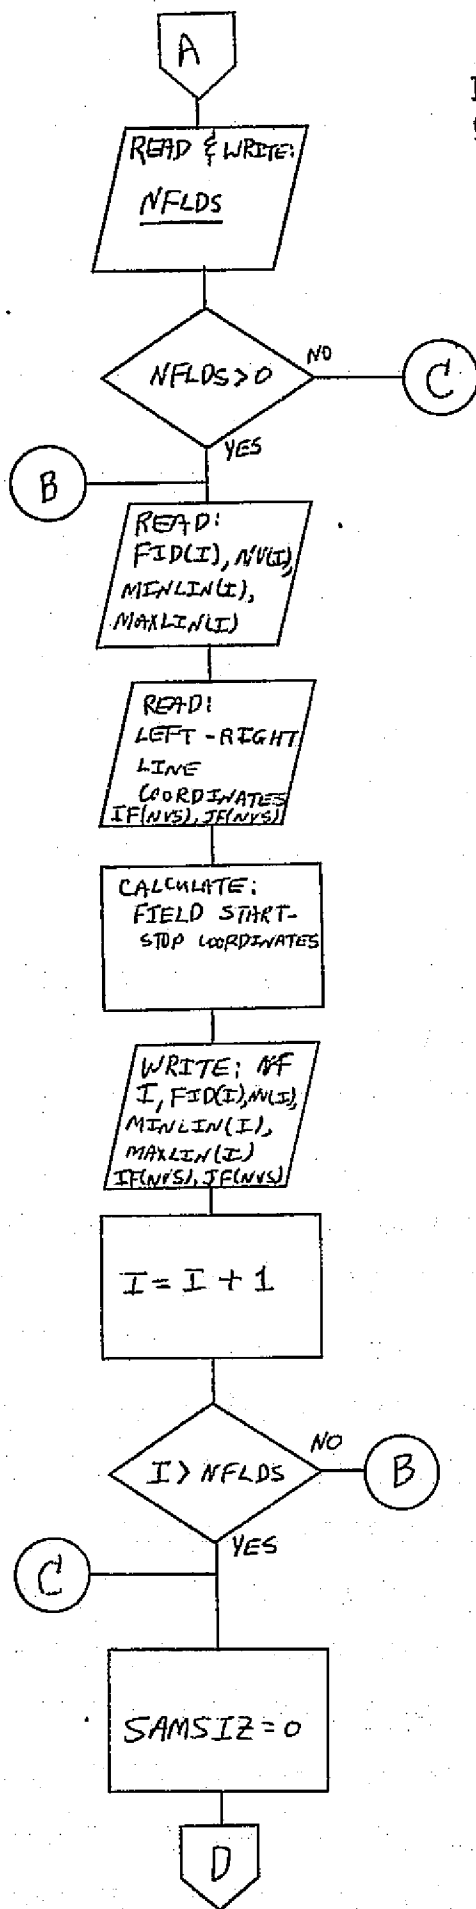 A
READ & WRITE:
NFLDS
NFLDS > 0
NO
C
YES
B
READ:
FID(I), NV(I),
MINLIN(I),
MAXLIN(I)
READ:
LEFT - RIGHT
LINE
COORDINATES
IF(NVS), JF(NVS)
CALCULATE:
FIELD START-
STOP COORDINATES
WRITE: NF
I, FID(I), NV(I),
MINLIN(I),
MAXLIN(I)
IF(NVS), JF(NVS)
I = I + 1
I > NFLDS
NO
B
YES
C
SAMSIZ = 0
D